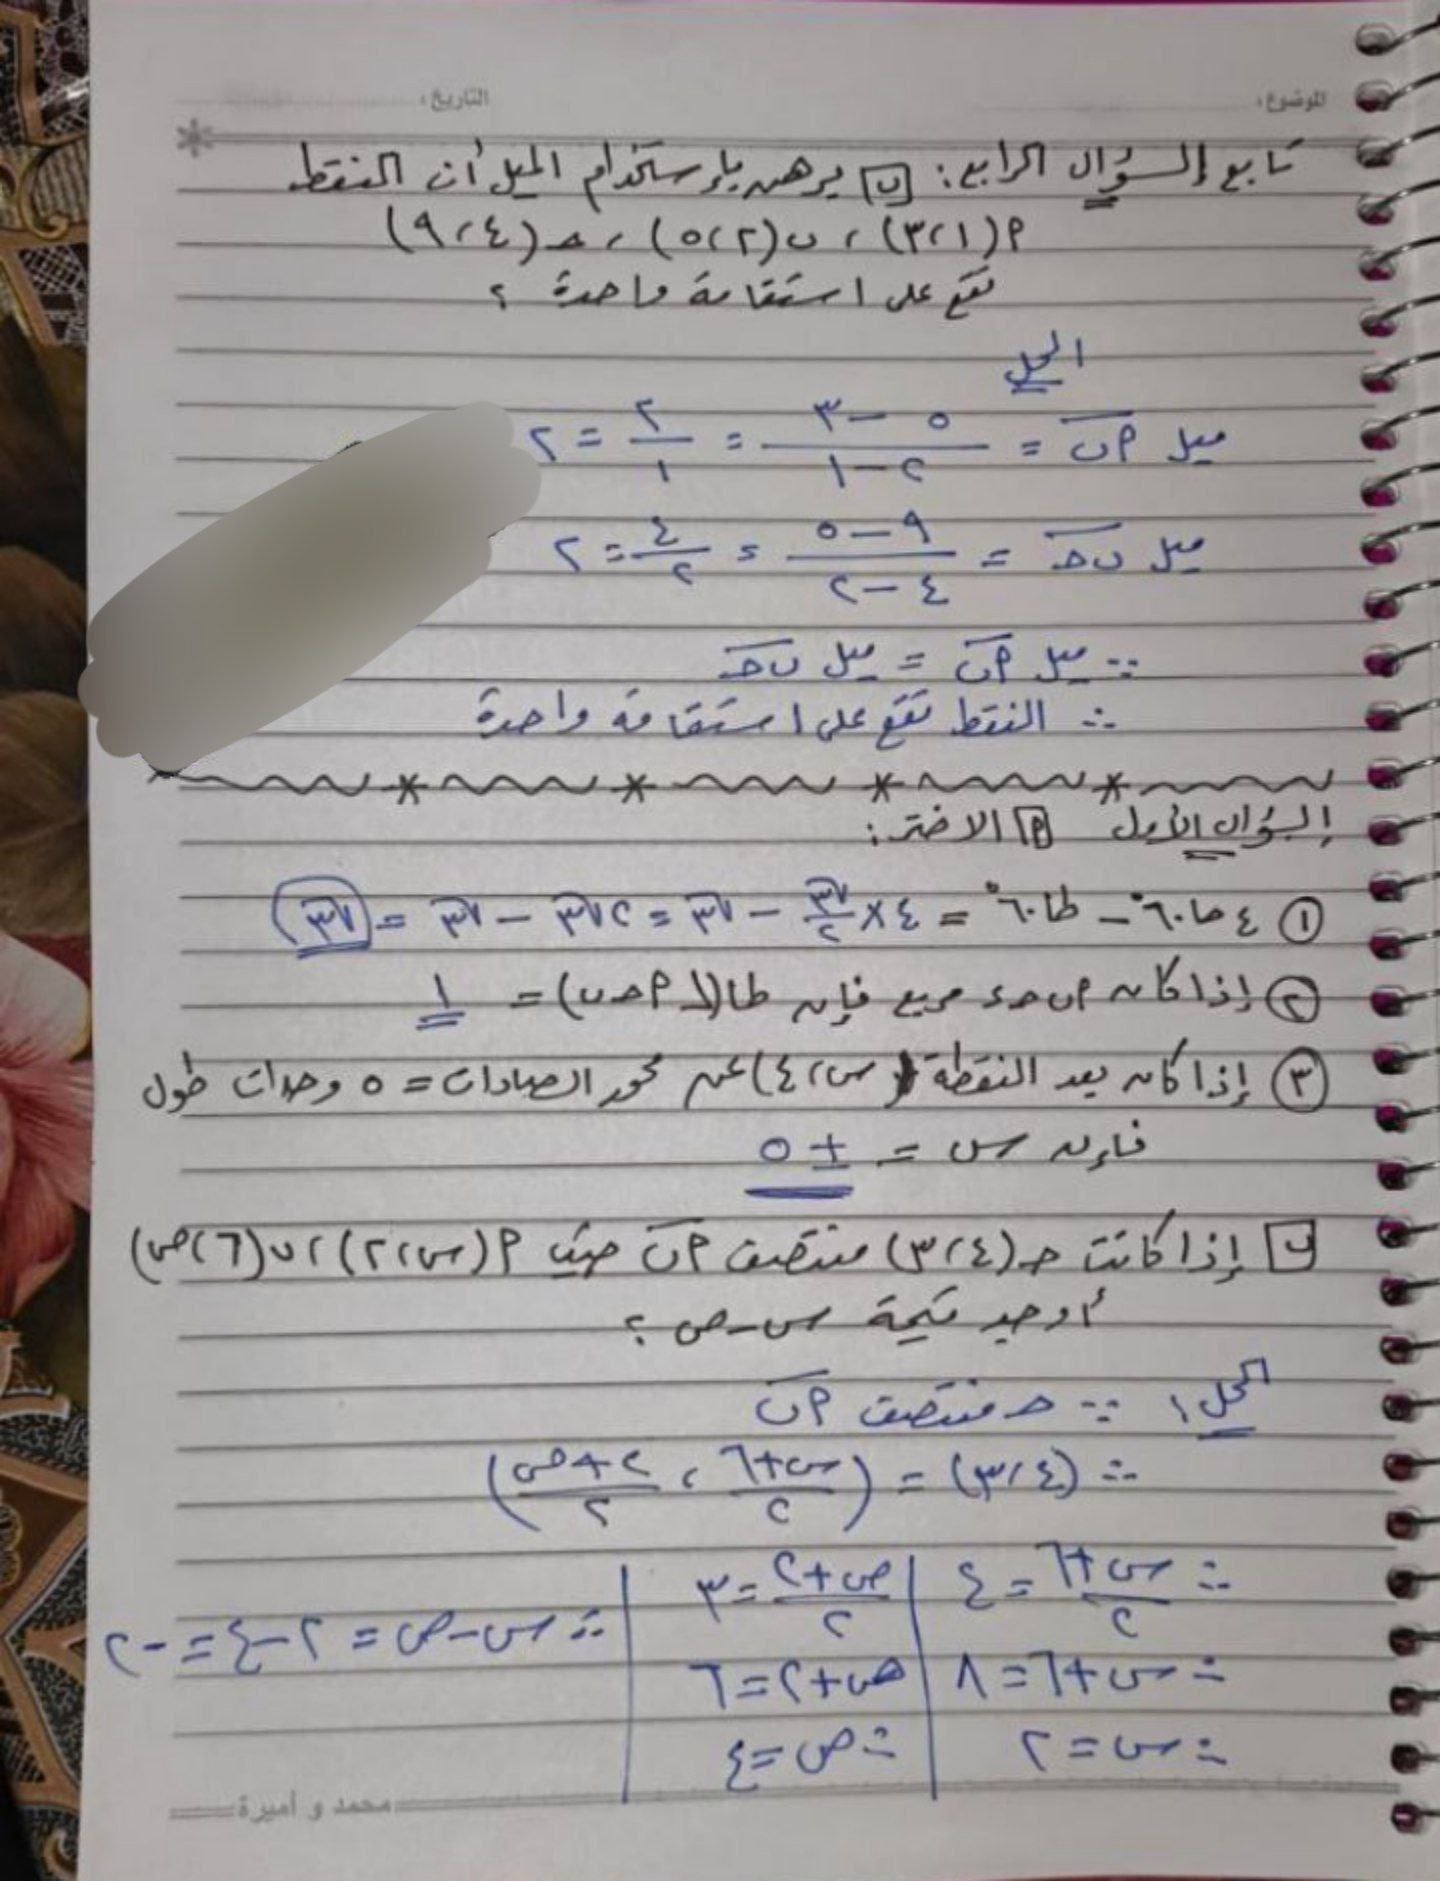 الموضوع: التاريخ:
تابع السؤال الرابع: [ب] برهن بإستخدام الميل أن النقط
م(١،٣) ، ب(٢،٥) ، حـ(٤،٩)
تقع على استقامة واحدة ؟
الحل
ميل م ب = (٥ - ٣)/(٢ - ١) = ٢/١ = ٢
ميل ب حـ = (٩ - ٥)/(٤ - ٢) = ٤/٢ = ٢
∵ ميل م ب = ميل ب حـ
∴ النقط تقع على استقامة واحدة
السؤال الأول [م] الاختر:
① ٤ حا ٦٠° - طا ٦٠° = ٤ × √٣/٢ - √٣ = ٢√٣ - √٣ = √٣
② إذا كان م ب حـ ء مربع فإن طا(∠ م حـ ب) = ١
③ إذا كان بعد النقطة (س،٤) عن محور الصادات = ٥ وحدات طول
فإن س = ± ٥
[ب] إذا كانت حـ(٤،٣) منتصف م ب حيث م(س،٢) ، ب(٦،ص)
أوجد قيمة س-ص ؟
الحل ∵ حـ منتصف م ب
∴ (٤،٣) = ((س+٦)/٢ ، (٢+ص)/٢)
∴ (س+٦)/٢ = ٤ | (ص+٢)/٢ = ٣ | ∴ س-ص = ٢-٤ = -٢
∴ س+٦ = ٨ | ص+٢ = ٦
∴ س = ٢ | ∴ ص = ٤
محمد و أميرة